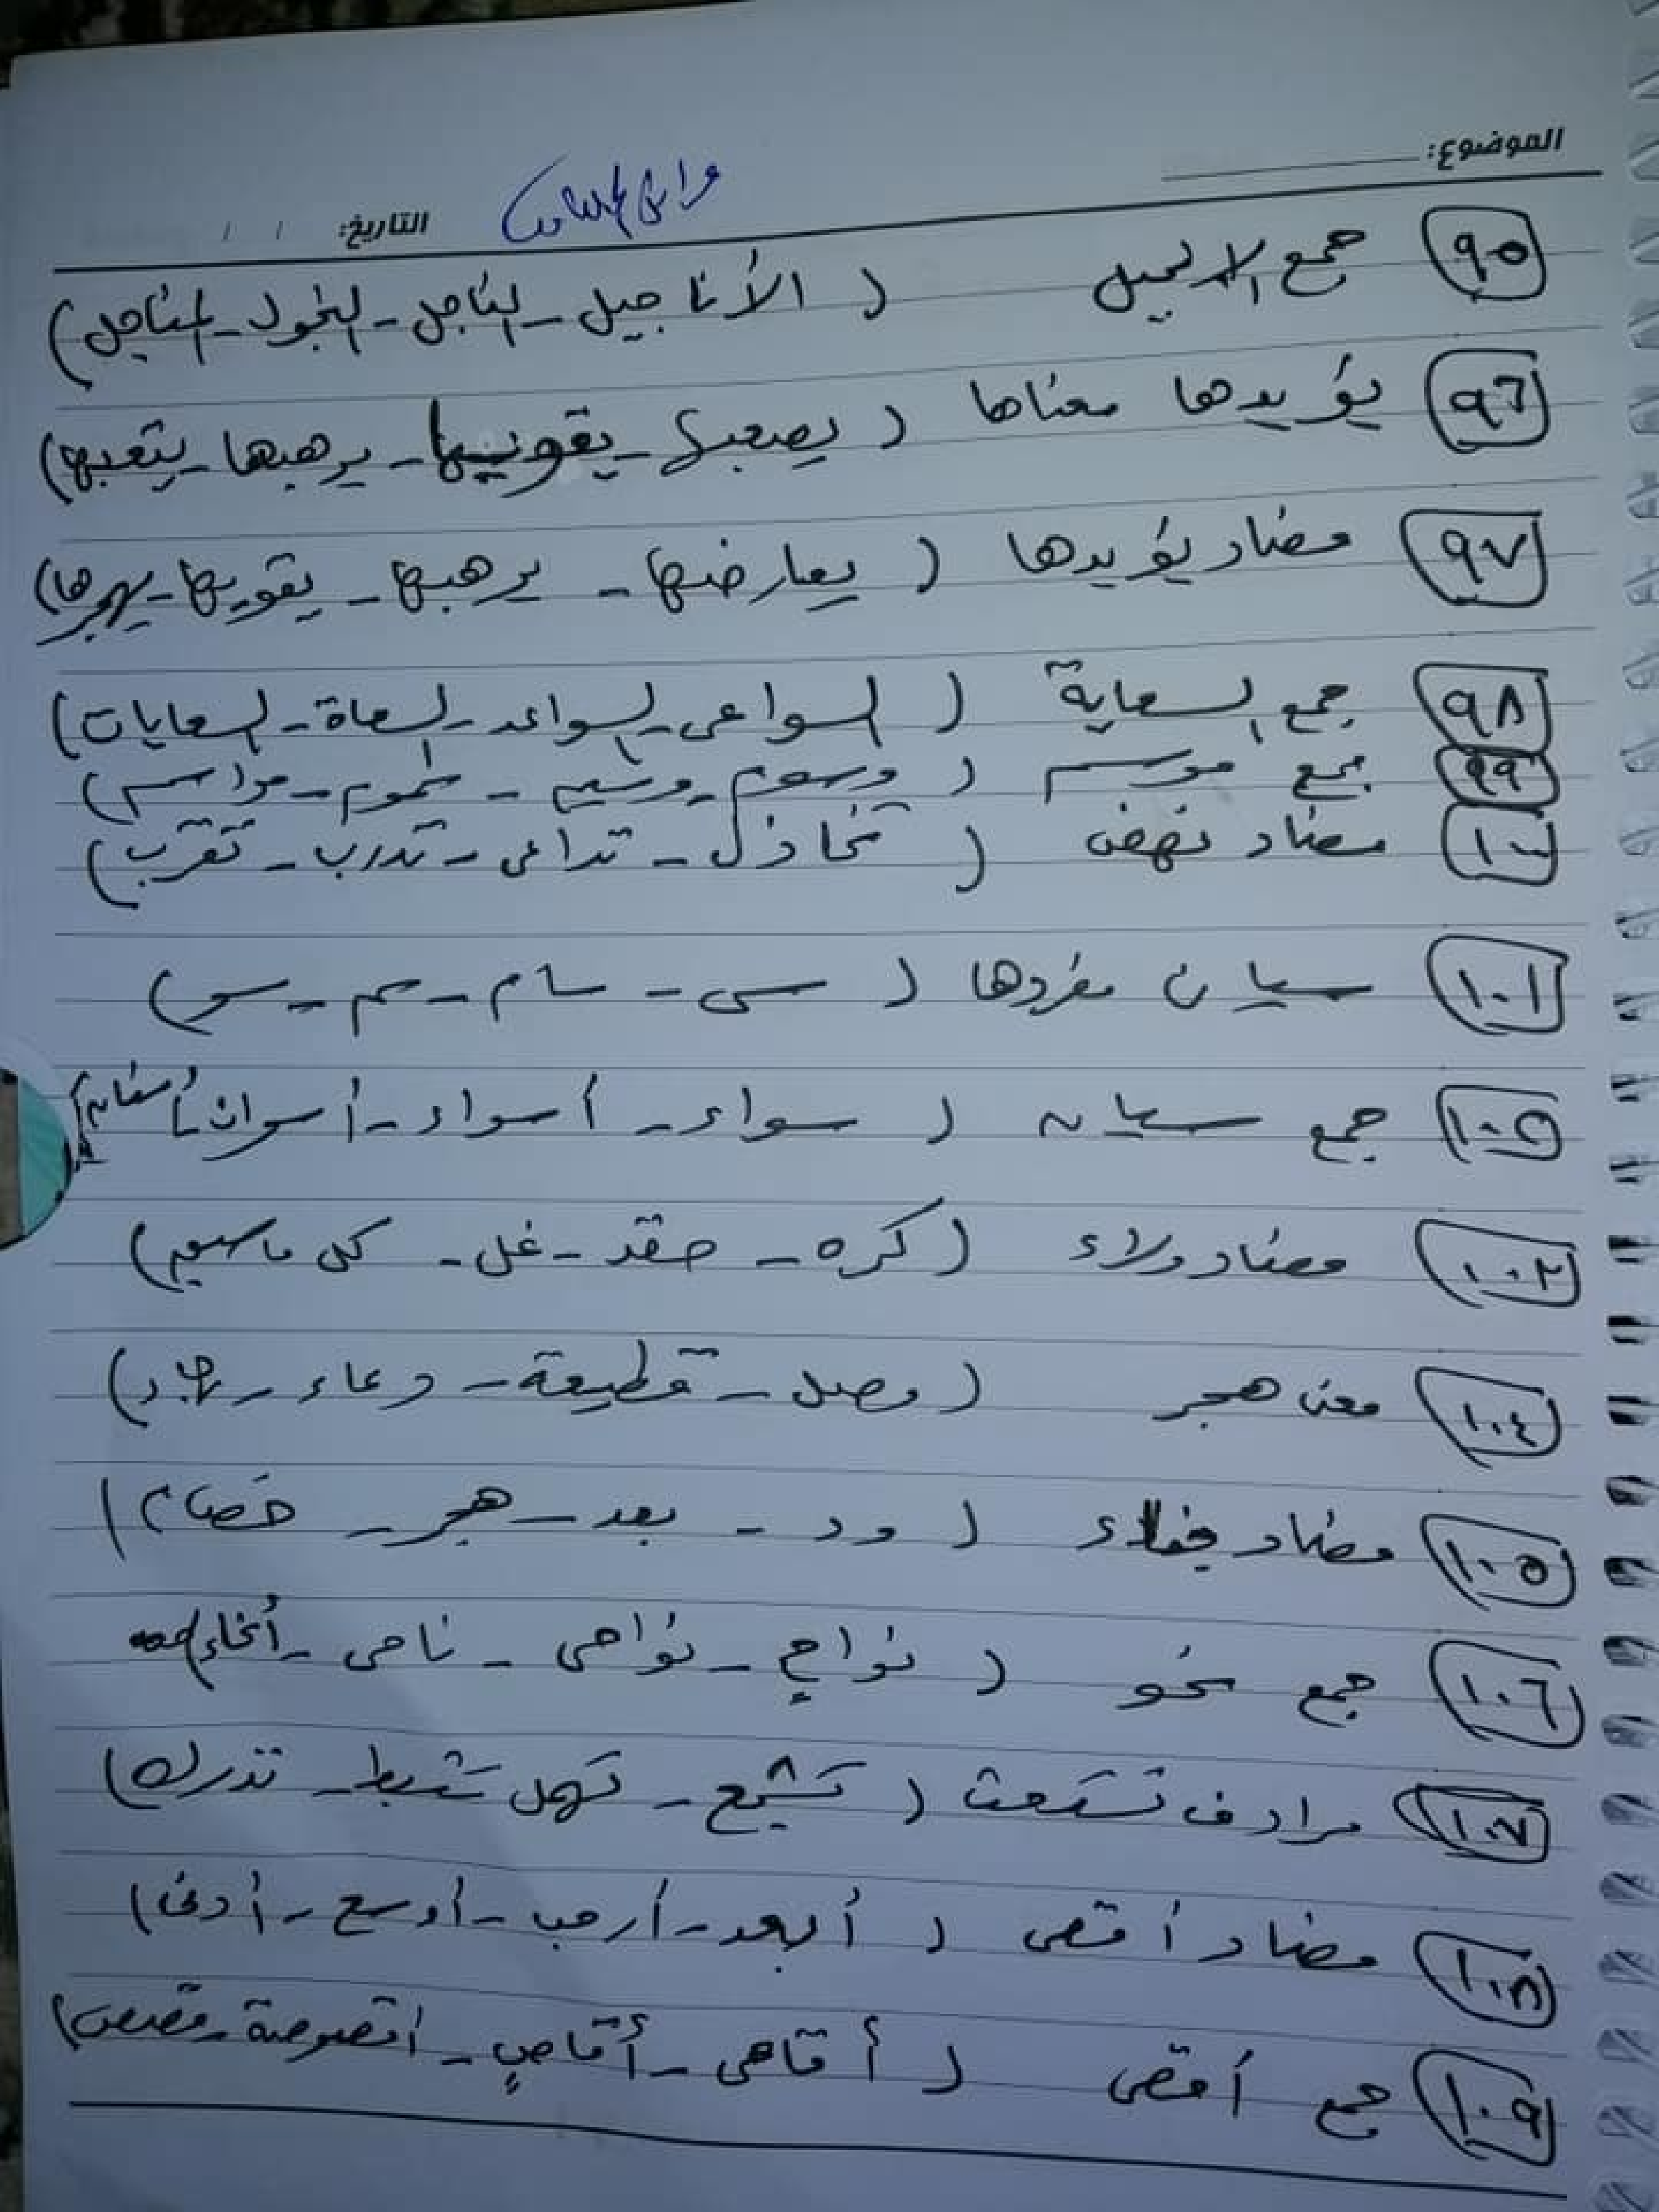 الموضوع:
التاريخ: / /
٩٥ جمع الانجيل ( الأناجيل - النأجل - النجول - المناجل )
٩٦ يؤيدها معناها ( يصعبها - يقويها - يرهبها - يتعبها )
٩٧ مضاد يؤيدها ( يعارضها - يرهبها - يقويها - يهجرها )
٩٨ جمع السعاية ( السواعى - السواعد - السعاة - السعايات )
٩٩ جمع موسم ( وسوم - وسيم - - مواسم )
١٠٠ مضاد نهض ( تخاذل - تداعى - تدرب - تقرب )
١٠١ سيان مفردها ( سى - سام - سم - سو )
١٠٢ جمع سيان ( سواء - أسواء - أسوان - )
١٠٣ مضاد ولاء ( كره - حقد - غل - كل ماسبق )
١٠٤ معنى هجر ( وصل - قطيعة - دعاء - )
١٠٥ مضاد جفاء ( ود - بعد - هجر - خصام )
١٠٦ جمع نحو ( نواح - نواحى - ناحى - أنحاء )
١٠٧ مرادف تستحث ( تشجع - تهمل - تثبط - تدرك )
١٠٨ مضاد أقصى ( أبعد - أرحب - أوسع - أدنى )
١٠٩ جمع أقصى ( أقاصى - أقاصٍ - اقصوصة - قصص )